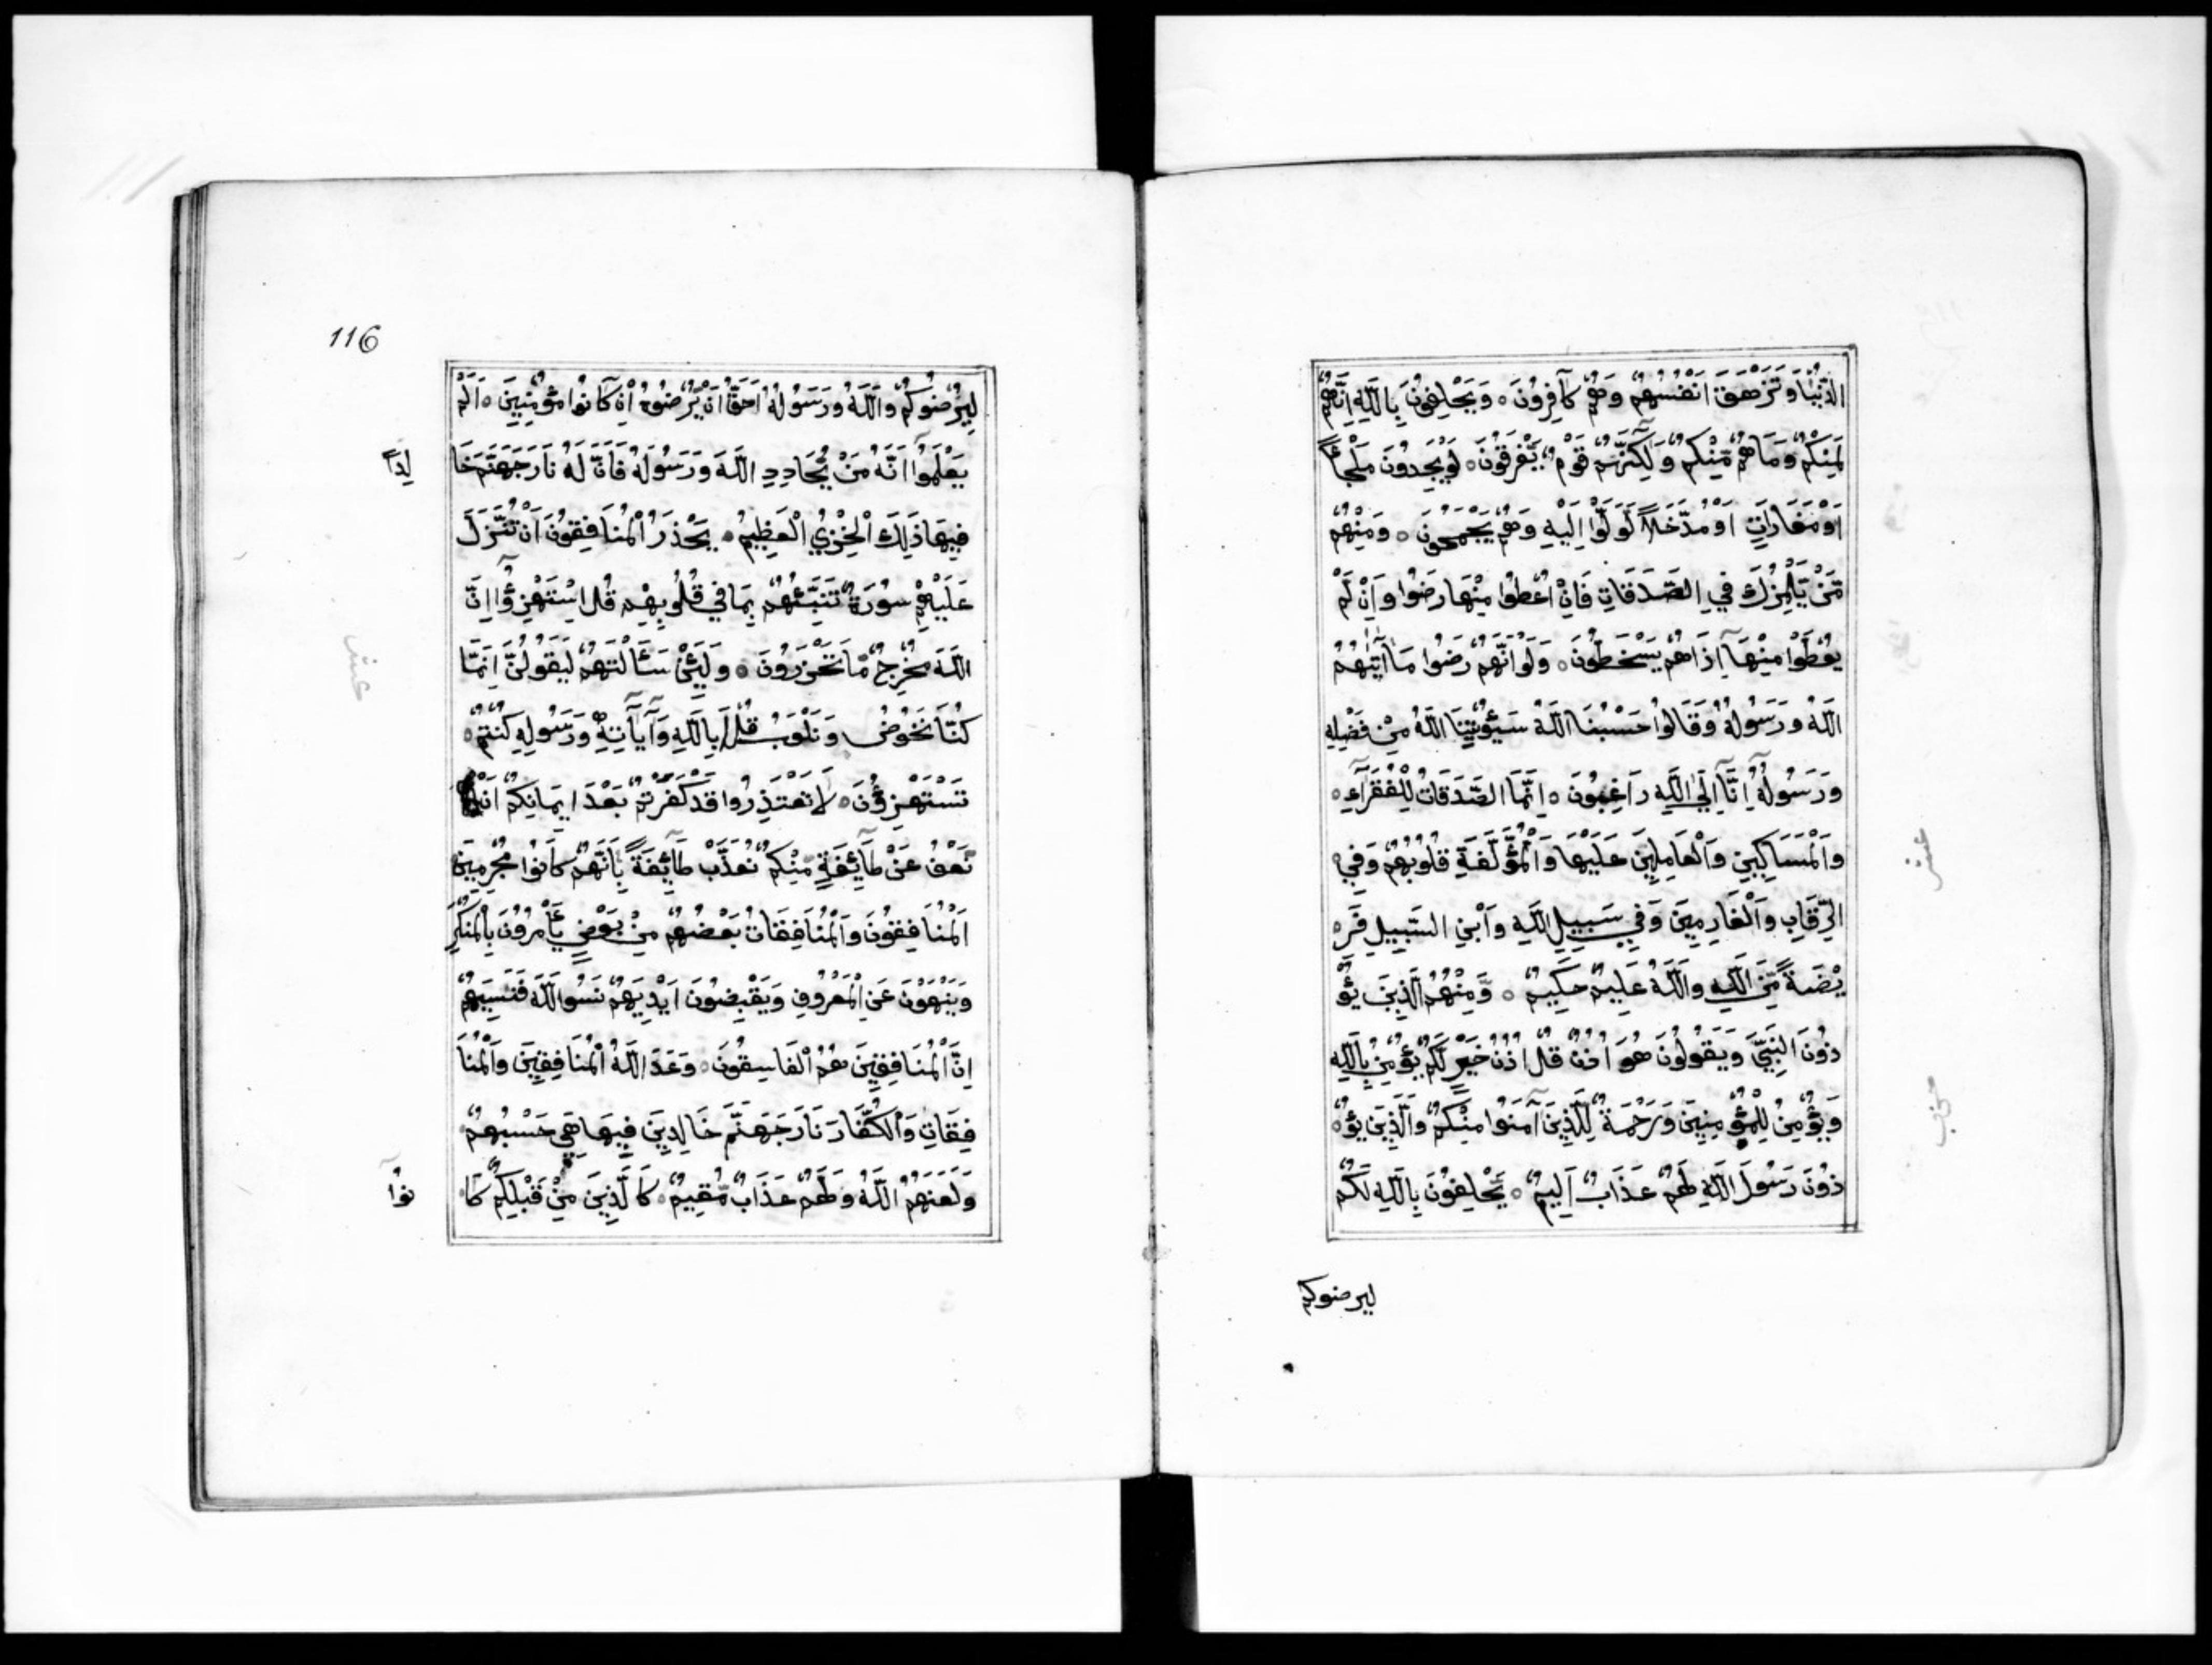 الدُّنْيَا وَتَزْهَقَ اَنْفُسُهُمْ وَهُمْ كَافِرُونَ ۝ وَيَحْلِفُونَ بِاللَّهِ اِنَّهُمْ
لَمِنْكُمْ وَمَا هُمْ مِّنْكُمْ وَلَكِنَّهُمْ قَوْمٌ يَّفْرَقُونَ ۝ لَوْ يَجِدُونَ مَلْجَأً
اَوْ مَغَارَاتٍ اَوْ مُدَّخَلًا لَوَلَّوْا اِلَيْهِ وَهُمْ يَجْمَحُونَ ۝ وَمِنْهُمْ
مَّنْ يَلْمِزُكَ فِي الصَّدَقَاتِ فَاِنْ اُعْطُوْا مِنْهَا رَضُوا وَاِنْ لَمْ
يُعْطَوْا مِنْهَا اِذَا هُمْ يَسْخَطُونَ ۝ وَلَوْ اَنَّهُمْ رَضُوا مَا آتٰهُمُ
اللَّهُ وَرَسُولُهُ وَقَالُوا حَسْبُنَا اللَّهُ سَيُؤْتِينَا اللَّهُ مِنْ فَضْلِهِ
وَرَسُولُهُ اِنَّا اِلَى اللَّهِ رَاغِبُونَ ۝ اِنَّمَا الصَّدَقَاتُ لِلْفُقَرَآءِ
وَالْمَسَاكِينِ وَالْعَامِلِينَ عَلَيْهَا وَالْمُؤَلَّفَةِ قُلُوبُهُمْ وَفِي
الرِّقَابِ وَالْغَارِمِينَ وَفِي سَبِيلِ اللَّهِ وَابْنِ السَّبِيلِ فَرِ
يْضَةً مِّنَ اللَّهِ وَاللَّهُ عَلِيمٌ حَكِيمٌ ۝ وَمِنْهُمُ الَّذِينَ يُؤْ
ذُونَ النَّبِيَّ وَيَقُولُونَ هُوَ اُذُنٌ قُلْ اُذُنُ خَيْرٍ لَّكُمْ يُؤْمِنُ بِاللَّهِ
وَيُؤْمِنُ لِلْمُؤْمِنِينَ وَرَحْمَةٌ لِّلَّذِينَ آمَنُوا مِنْكُمْ وَالَّذِينَ يُؤْ
ذُونَ رَسُولَ اللَّهِ لَهُمْ عَذَابٌ اَلِيمٌ ۝ يَحْلِفُونَ بِاللَّهِ لَكُمْ
ليرضوكم
عشر
116
لِيُرْضُوكُمْ وَاللَّهُ وَرَسُولُهُ اَحَقُّ اَنْ يُرْضُوهُ اِنْ كَانُوا مُؤْمِنِينَ ۝ اَلَمْ
يَعْلَمُوا اَنَّهُ مَنْ يُحَادِدِ اللَّهَ وَرَسُولَهُ فَاَنَّ لَهُ نَارَ جَهَنَّمَ خَا
لِدًا
فِيهَا ذَلِكَ الْخِزْيُ الْعَظِيمُ ۝ يَحْذَرُ الْمُنَافِقُونَ اَنْ تُنَزَّلَ
عَلَيْهِمْ سُورَةٌ تُنَبِّئُهُمْ بِمَا فِي قُلُوبِهِمْ قُلِ اسْتَهْزِؤُا اِنَّ
اللَّهَ مُخْرِجٌ مَّا تَحْذَرُونَ ۝ وَلَئِنْ سَئَالْتَهُمْ لَيَقُولُنَّ اِنَّمَا
كُنَّا نَخُوضُ وَنَلْعَبُ قُلْ اَبِاللَّهِ وَآيَاتِهِ وَرَسُولِهِ كُنْتُمْ
تَسْتَهْزِؤُنَ ۝ لَا تَعْتَذِرُوا قَدْ كَفَرْتُمْ بَعْدَ اِيمَانِكُمْ اِنْ
نَعْفُ عَنْ طَآئِفَةٍ مِّنْكُمْ نُعَذِّبْ طَآئِفَةً بِاَنَّهُمْ كَانُوا مُجْرِمِينَ
اَلْمُنَافِقُونَ وَالْمُنَافِقَاتُ بَعْضُهُمْ مِنْ بَعْضٍ يَأْمُرُونَ بِالْمُنْكَرِ
وَيَنْهَوْنَ عَنِ الْمَعْرُوفِ وَيَقْبِضُونَ اَيْدِيَهُمْ نَسُوا اللَّهَ فَنَسِيَهُمْ
اِنَّ الْمُنَافِقِينَ هُمُ الْفَاسِقُونَ ۝ وَعَدَ اللَّهُ الْمُنَافِقِينَ وَالْمُنَا
فِقَاتِ وَالْكُفَّارَ نَارَ جَهَنَّمَ خَالِدِينَ فِيهَا هِيَ حَسْبُهُمْ
وَلَعَنَهُمُ اللَّهُ وَلَهُمْ عَذَابٌ مُّقِيمٌ ۝ كَالَّذِينَ مِنْ قَبْلِكُمْ كَا
نُوا
عشر